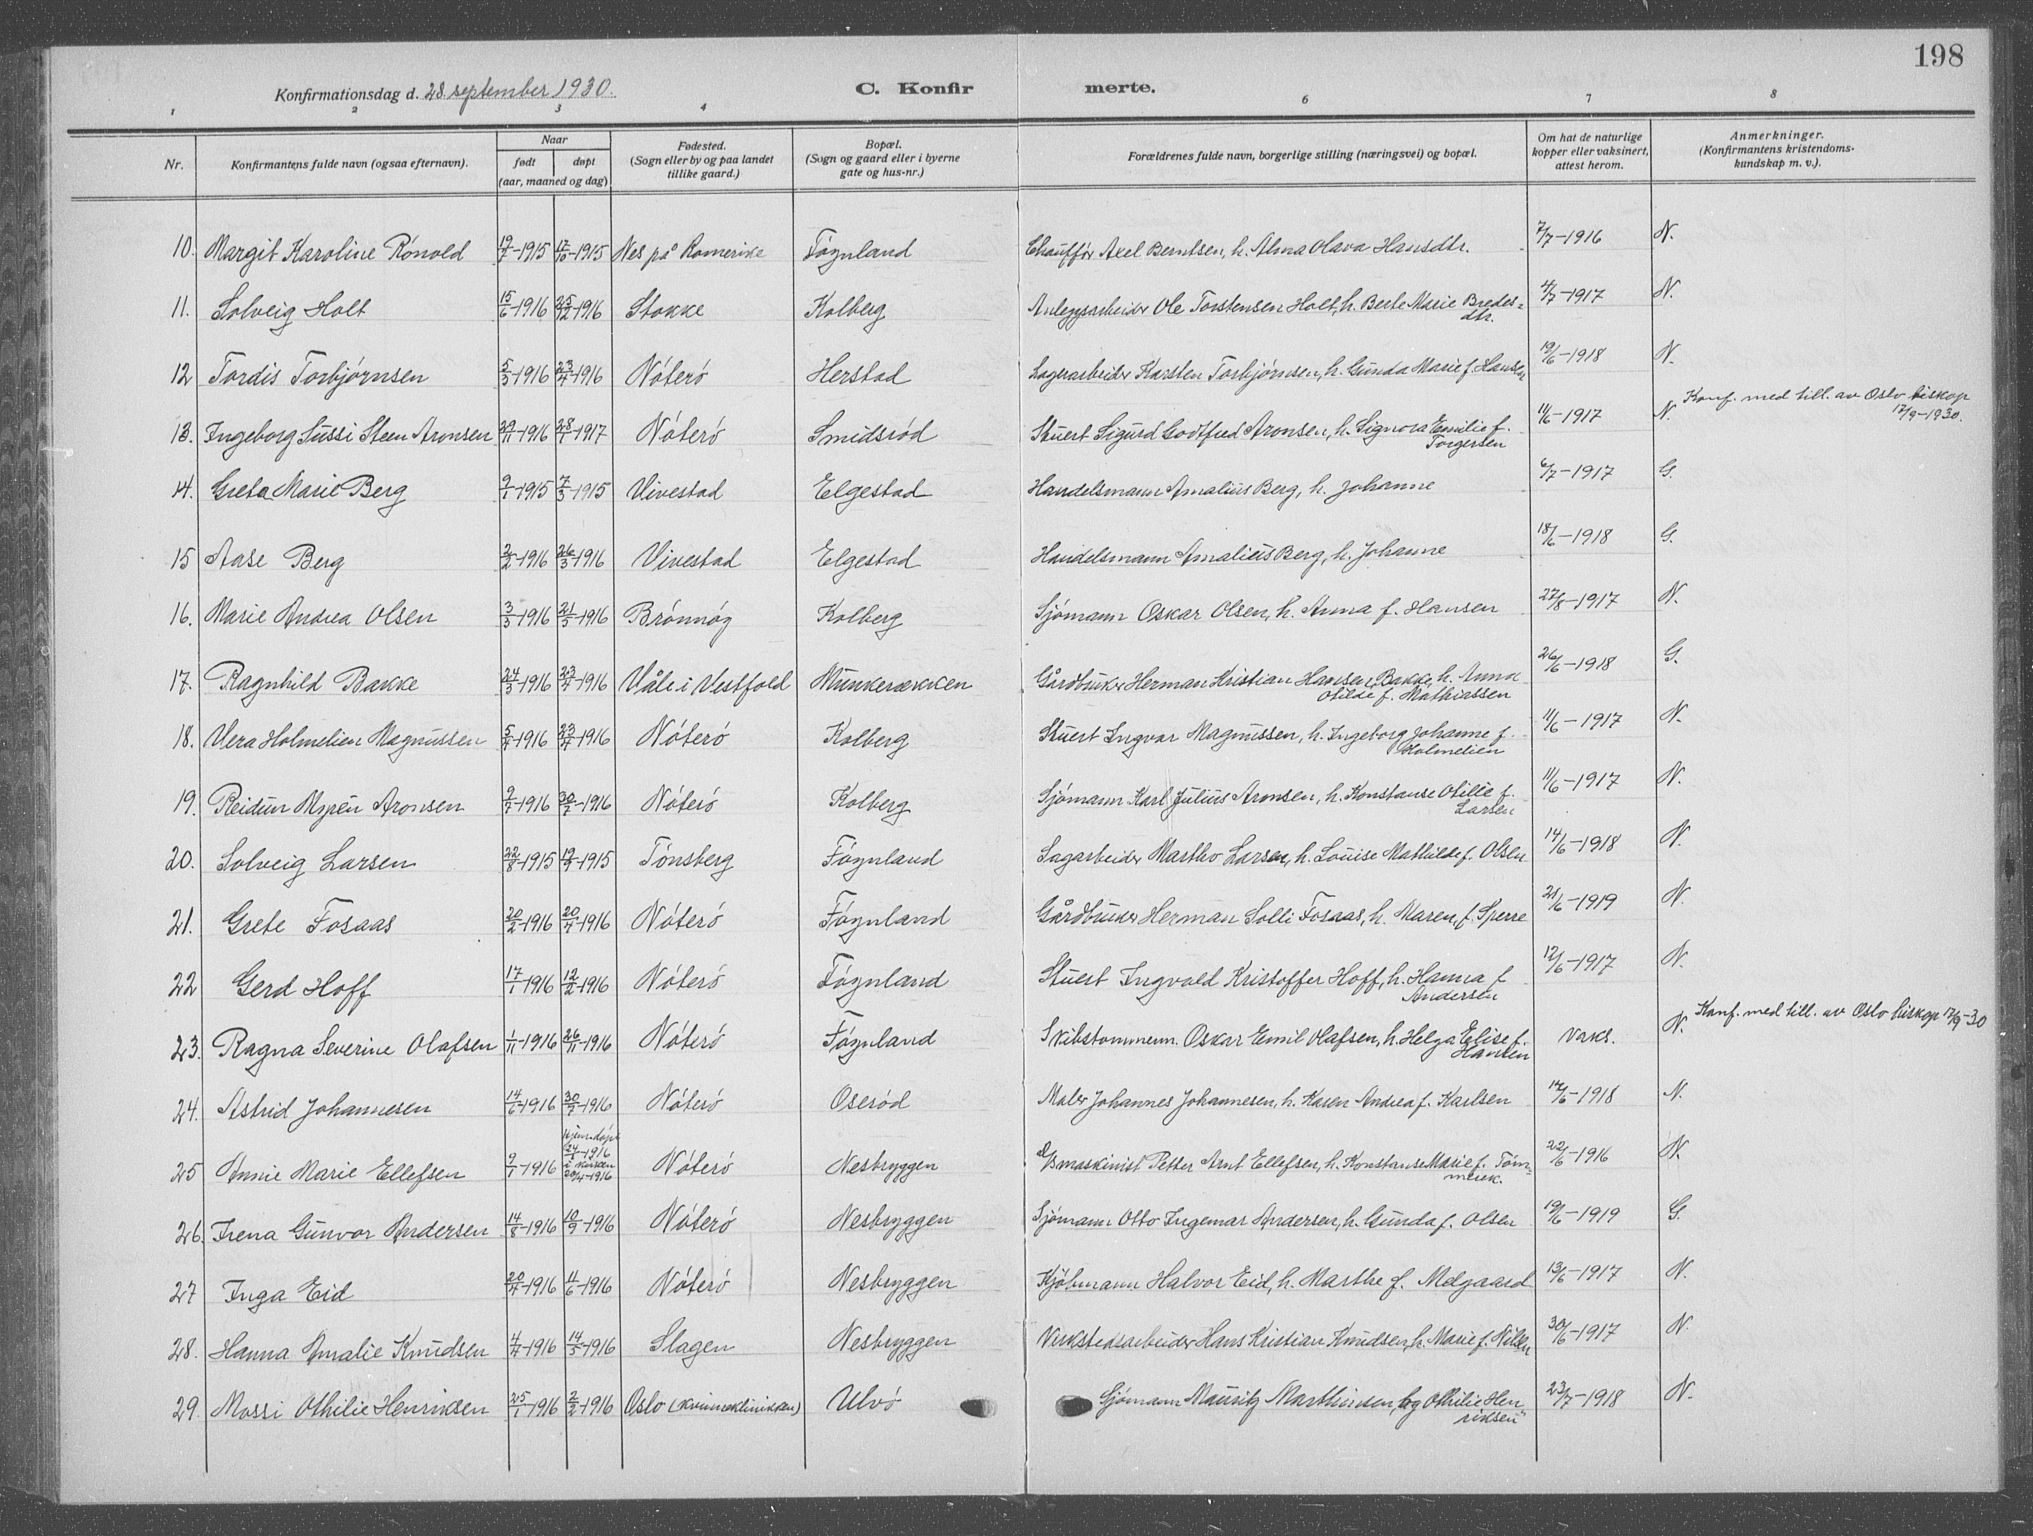 198
Konfirmationsdag d. 28. september 1930. C. Konfirmerte.
1 2 3 4 6 7 8
Nr. Konfirmantens fulde navn (ogsaa efternavn). Naar født døpt (aar, maaned og dag) Fødested. (Sogn eller by og paa landet tillike gaard.) Bopæl. (Sogn og gaard eller i byerne gate og hus-nr.) Forældrenes fulde navn, borgerlige stilling (næringsvei) og bopæl. Om hat de naturlige kopper eller vaksinert, attest herom. Anmerkninger. (Konfirmantens kristendomskundskap m. v.).
10. Margit Karoline Rónold 19/7-1915 17/10-1915 Nes på Romerike Føynland Chauffør Axel Berntsen, h. Alma Olava Hansdtr. 7/7-1916 N.
11. Solveig Holt 15/6-1916 25/12-1916 Stokke Kolberg Anleggsarbeider Ole Torstensen Holt, h. Berte Marie Bredesdtr. 4/7-1917 N.
12 Tordis Torbjørnsen 5/3-1916 23/4-1916 Nóteró Herstad Lagerarbeider Karsten Torbjørnsen, h. Gunda Marie f. Hansen 19/6-1918 N.
13. Ingeborg Sussi Steen Aronsen 29/11-1916 28/1-1917 Nóteró Smidsród Stuert Sigurd Godtfred Aronsen, h. Signora Emilie f. Torgersen 11/6-1917 N. Konf. med till. av Oslo biskop 17/9-1930.
14. Greta Marie Berg 9/1-1915 7/3-1915 Vivestad Elgestad Handelsmann Amalius Berg, h. Johanne 6/7-1917 G.
15 Aase Berg 2/2-1916 26/3-1916 Vivestad Elgestad Handelsmann Amalius Berg, h. Johanne 18/6-1918 G.
16. Marie Andrea Olsen 3/3-1916 21/5-1916 Brónnóy Kolberg Sjómann Oskar Olsen, h. Anna f. Hansen 27/8-1917 N.
17. Ragnhild Bakke 24/3-1916 23/4-1916 Våle i Vestfold Munkerækken Gårdbruker Herman Kristian Hansen Bakke, h. Anna Otilde f. Mathiassen 26/6-1918 G.
18. Vera Holmelien Magnussen 5/4-1916 23/4-1916 Nóteró Kolberg Stuert Ingvar Magnussen, h. Ingeborg Johanne f. Holmelien 11/6-1917 N.
19. Reidun Myren Aronsen 9/7-1916 30/7-1916 Nóteró Kolberg Sjómann Karl Julius Aronsen, h. Konstanse Otilie f. Larsen 11/6-1917 N.
20. Solveig Larsen 22/8-1915 19/9-1915 Tónsberg Føynland Sagarbeider Martho Larsen, h. Louise Mathilde f. Olsen 14/6-1918 N.
21. Grete Fosaas 20/2-1916 20/4-1916 Nóteró Føynland Gårdbruker Herman Solli Fosaas, h. Maren, f. Sperre 21/6-1919 N.
22 Gerd Hoff 17/1-1916 12/2-1916 Nóteró Føynland Stuert Ingvald Kristoffer Hoff, h. Hanna f. Andersen 12/6-1917 N.
23. Ragna Severine Olafsen 1/11-1916 26/11-1916 Nóteró Føynland Skibstømmerm. Oskar Emil Olafsen, h. Helga Elise f. Hansen vaks. N. Konf. med till. av Oslo biskop 17/9-30
24. Astrid Johannesen 14/6-1916 30/7-1916 Nóteró Oseród Maler Johannes Johannesen, h. Karen Andrea f. Karlsen 14/6-1918 N.
25 Annie Marie Ellefsen 9/1-1916 Hjemmedøpt 24/1-1916 i kirken 20/4-1916 Nóteró Nesbryggen Dpsmaskinist Petter Arnt Ellefsen, h. Konstanse Marie f. Tømmerek. 22/6-1916 N.
26. Irena Gunvor Andersen 14/8-1916 10/9-1916 Nóteró Nesbryggen Sjómann Otto Ingemar Andersen, h. Gunda f. Olsen 19/6-1919 G.
27 Inga Eid 20/4-1916 11/6-1916 Nóteró Nesbryggen Kjøbmann Halvor Eid, h. Marthe f. Melgaard 13/6-1917 N.
28. Hanna Amalie Knudsen 4/4-1916 14/5-1916 Slagen Nesbryggen Verkstedsarbeider Hans Kristian Knudsen, h. Marie f. Nilsen 30/6-1917 N.
29. Mossi Othilie Henriksen 25/1-1916 2/2-1916 Oslo (Kvinneklinikken) Ulvó Sjómann Mauritz Marthinsen, og Othilie Henriksen 23/7-1918 N.